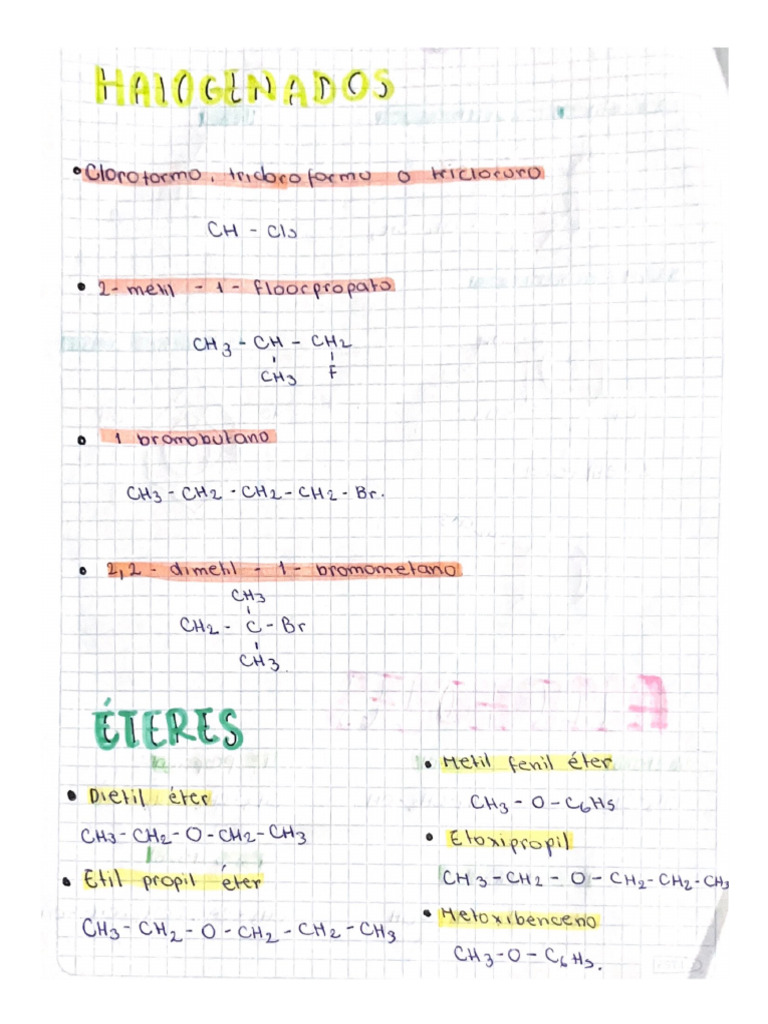 HALOGENADOS
• Cloroformo, tricloroformo o tricloruro
CH - Cl3
• 2- metil - 1 - floocpropato
CH3 - CH - CH2
CH3 F
• 1 bromobutano
CH3 - CH2 - CH2 - CH2 - Br.
• 2,2 - dimetil - 1 - bromometano
CH3
CH2 - C - Br
CH3.
ÉTERES
• Dietil éter
CH3 - CH2 - O - CH2 - CH3
• Etil propil éter
CH3 - CH2 - O - CH2 - CH2 - CH3
• Metil fenil éter
CH3 - O - C6H5
• Etoxipropil
CH3 - CH2 - O - CH2 - CH2 - CH3
• Metoxibenceno
CH3 - O - C6H5.